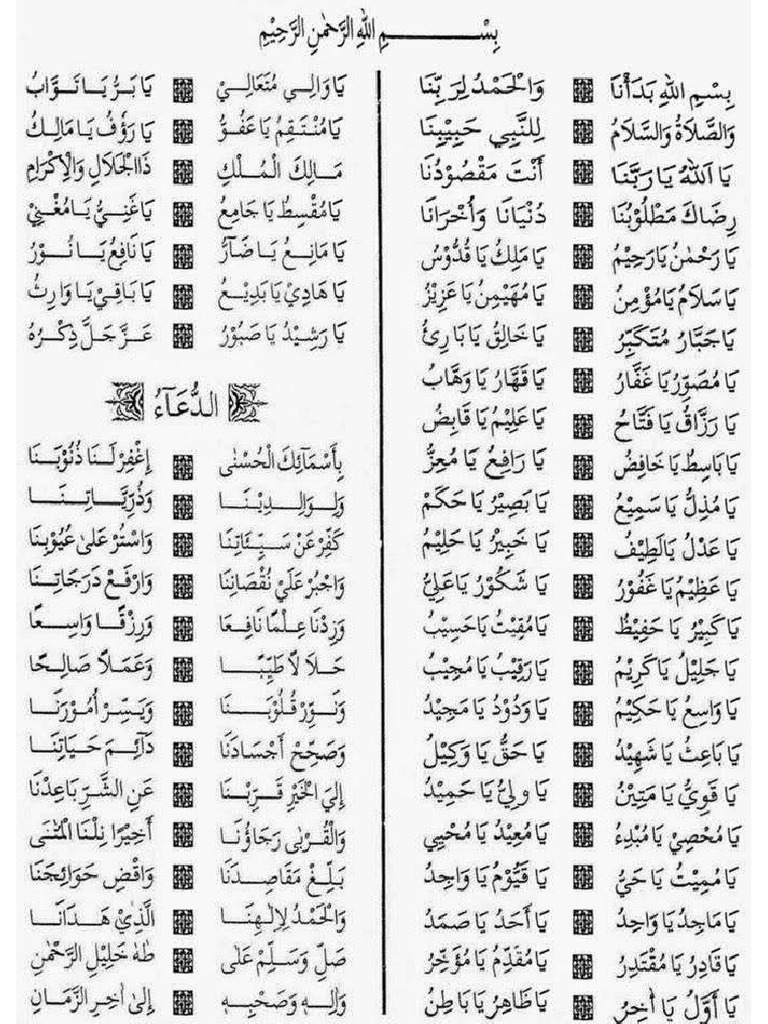 بِسْمِ اللهِ الرَّحْمٰنِ الرَّحِيْمِ
بِسْمِ اللهِ بَدَأْنَا وَالْحَمْدُ لِرَبِّنَا
وَالصَّلَاةُ وَالسَّلَامُ لِلنَّبِي حَبِيْبِنَا
يَا اَللهُ يَا رَبَّنَا أَنْتَ مَقْصُوْدُنَا
رِضَاكَ مَطْلُوْبُنَا دُنْيَانَا وَأُخْرَانَا
يَا رَحْمٰنُ يَارَحِيْمُ يَا مَلِكُ يَا قُدُّوْسُ
يَا سَلَامُ يَامُؤْمِنُ يَا مُهَيْمِنُ يَا عَزِيْزُ
يَاجَبَّارُ مُتَكَبِّرُ يَا خَالِقُ يَا بَارِئُ
يَا مُصَوِّرُ يَا غَفَّارُ يَا قَهَّارُ يَا وَهَّابُ
يَا رَزَّاقُ يَا فَتَّاحُ يَا عَلِيْمُ يَا قَابِضُ
يَا بَاسِطُ يَا خَافِضُ يَا رَافِعُ يَا مُعِزُّ
يَا مُذِلُّ يَا سَمِيْعُ يَا بَصِيْرُ يَا حَكَمْ
يَا عَدْلُ يَالَطِيْفُ يَا خَبِيْرُ يَا حَلِيْمُ
يَا عَظِيْمُ يَا غَفُوْرُ يَا شَكُوْرُ يَاعَلِيُّ
يَاكَبِيْرُ يَا حَفِيْظُ يَا مُقِيْتُ يَاحَسِيْبُ
يَا جَلِيْلُ يَاكَرِيْمُ يَا رَقِيْبُ يَا مُجِيْبُ
يَا وَاسِعُ يَا حَكِيْمُ يَا وَدُوْدُ يَا مَجِيْدُ
يَا بَاعِثُ يَا شَهِيْدُ يَا حَقُّ يَا وَكِيْلُ
يَا قَوِيُّ يَا مَتِيْنُ يَا وَلِيُّ يَا حَمِيْدُ
يَا مُحْصِيْ يَا مُبْدِءُ يَا مُعِيْدُ يَا مُحْيِي
يَا مُمِيْتُ يَا حَيُّ يَا قَيُّوْمُ يَا وَاجِدُ
يَا مَاجِدُ يَا وَاحِدُ يَا أَحَدُ يَا صَمَدُ
يَا قَادِرُ يَا مُقْتَدِرُ يَا مُقَدِّمُ يَا مُؤَخِّرُ
يَا أَوَّلُ يَا أٰخِرُ يَا ظَاهِرُ يَا بَاطِنُ
يَا وَالِي مُتَعَالِيْ يَا بَرُّ يَا تَوَّابُ
يَا مُنْتَقِمُ يَا عَفُوُّ يَا رَؤُفُ يَا مَالِكُ
مَالِكَ الْمُلْكِ ذَاالْجَلَالِ وَالْإِكْرَامِ
يَا مُقْسِطُ يَا جَامِعُ يَا غَنِيُّ يَا مُغْنِيْ
يَا مَانِعُ يَا ضَآرُّ يَا نَافِعُ يَا نُوْرُ
يَا هَادِيْ يَا بَدِيْعُ يَا بَاقِيْ يَا وَارِثُ
يَا رَشِيْدُ يَا صَبُوْرُ عَزَّ جَلَّ ذِكْرُهُ
الدُّعَآءُ
بِأَسْمَائِكَ الْحُسْنٰى إِغْفِرْ لَنَا ذُنُوْبَنَا
وَلِوَالِدِيْنَا وَذُرِّيَّاتِنَا
كَفِّرْ عَنْ سَيِّئَاتِنَا وَاسْتُرْ عَلٰى عُيُوْبِنَا
وَاجْبُرْ عَلَيْ نُقْصَانِنَا وَارْفَعْ دَرَجَاتِنَا
وَزِدْنَا عِلْمًا نَافِعَا وَرِزْقًا وَاسِعًا
حَلَالًا طَيِّبًا وَعَمَلًا صَالِحًا
وَنَوِّرْ قُلُوْبَنَا وَيَسِّرْ أُمُوْرَنَا
وَصَحِّحْ أَجْسَادَنَا دَآئِمَ حَيَاتِنَا
إِلَى الْخَيْرِ قَرِّبْنَا عَنِ الشَّرِّ بَاعِدْنَا
وَالْقُرْبٰى رَجَاؤُنَا أَخِيْرًا نِلْنَا الْمُنٰى
بَلِّغْ مَقَاصِدَنَا وَاقْضِ حَوَائِجَنَا
وَالْحَمْدُ لِإِلٰهِنَا الَّذِيْ هَدَانَا
صَلِّ وَسَلِّمْ عَلٰى طٰهٰ خَلِيْلِ الرَّحْمٰنِ
وَاٰلِهٖ وَصَحْبِهٖ إِلٰى اٰخِرِ الزَّمَانِ